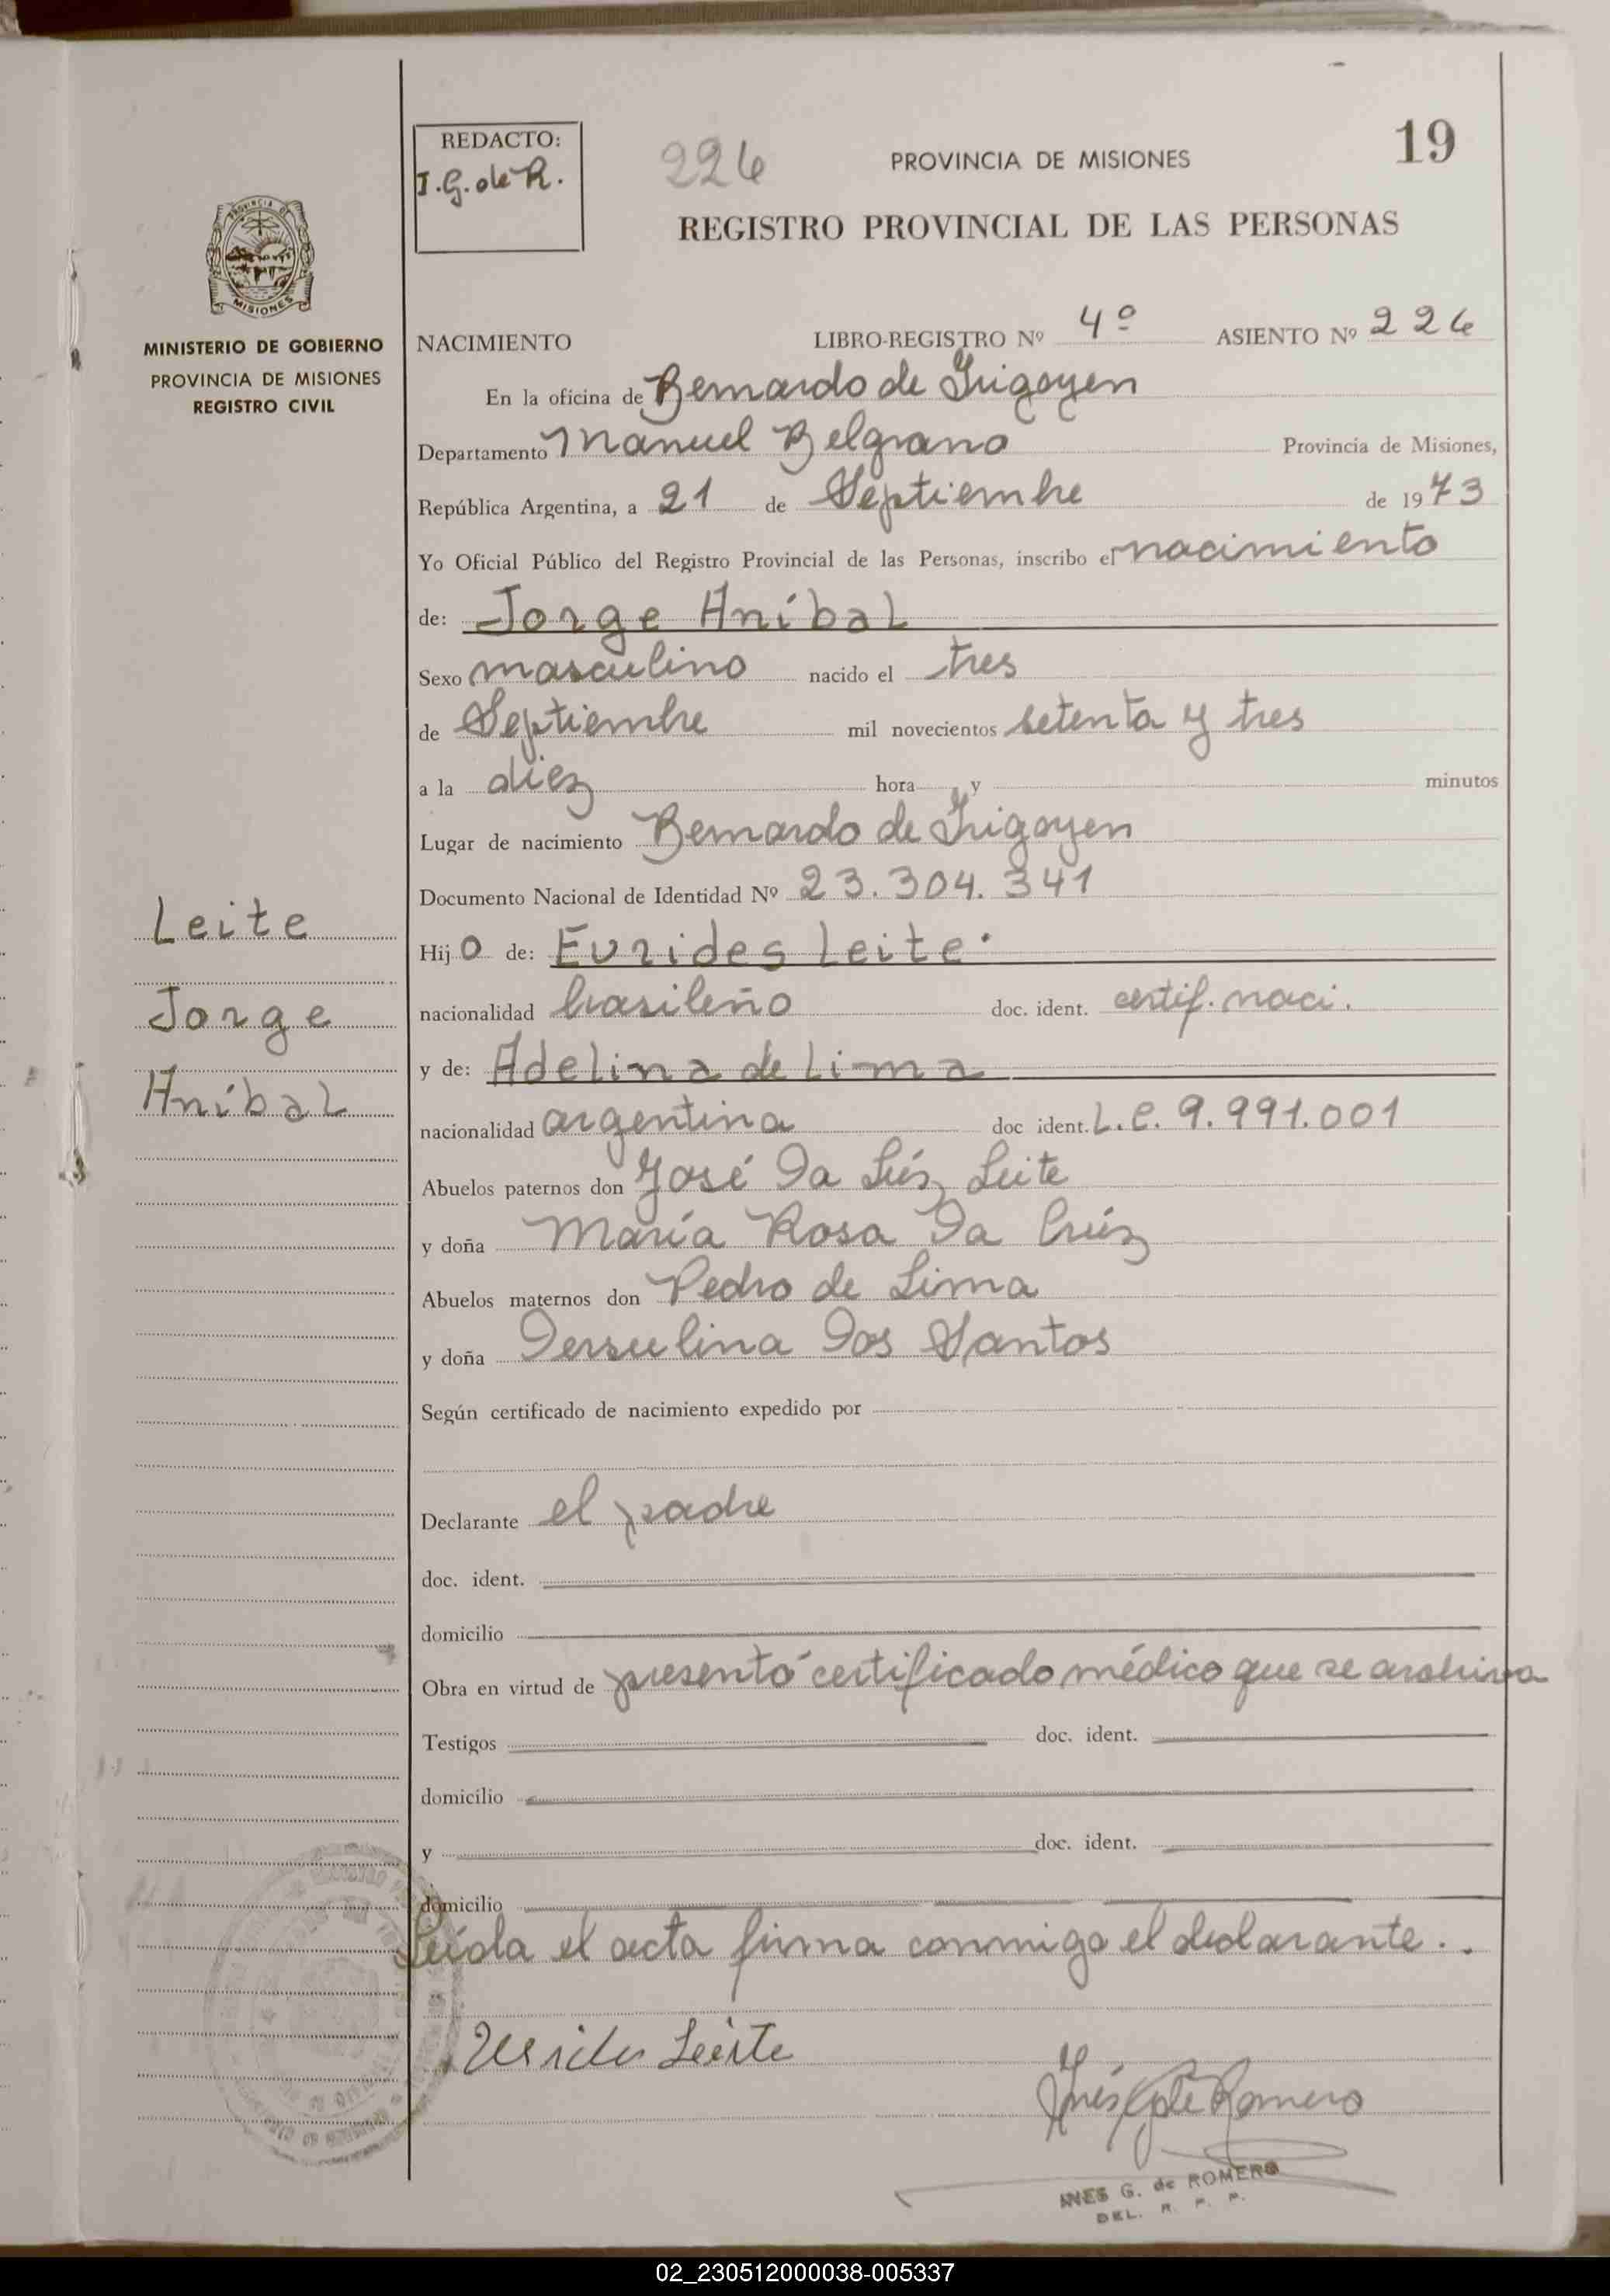 REDACTO:
I.G. de R.
226
PROVINCIA DE MISIONES
19
REGISTRO PROVINCIAL DE LAS PERSONAS
MISIONES
MINISTERIO DE GOBIERNO
PROVINCIA DE MISIONES
REGISTRO CIVIL
NACIMIENTO LIBRO-REGISTRO Nº 4º ASIENTO Nº 226
En la oficina de Bernardo de Irigoyen
Departamento Manuel Belgrano Provincia de Misiones,
República Argentina, a 21 de Septiembre de 1973
Yo Oficial Público del Registro Provincial de las Personas, inscribo el nacimiento
de: Jorge Aníbal
Sexo masculino nacido el tres
de Septiembre mil novecientos setenta y tres
a la diez hora y minutos
Lugar de nacimiento Bernardo de Irigoyen
Documento Nacional de Identidad Nº 23.304.341
Leite
Hijo de: Eurides Leite.
nacionalidad brasileño doc. ident. certif. naci.
Jorge
y de: Adelina de Lima
Aníbal
nacionalidad argentina doc ident. L.C. 9.991.001
Abuelos paternos don José Da Lúz Leite
y doña María Rosa Da Crúz
Abuelos maternos don Pedro de Lima
y doña Dersulina Dos Santos
Según certificado de nacimiento expedido por
Declarante el padre
doc. ident.
domicilio
Obra en virtud de presentó certificado médico que se archiva
Testigos doc. ident.
domicilio
y doc. ident.
domicilio
Leída el acta firma conmigo el declarante..
Leite
Inés G de Romero
INES G. de ROMERO
DEL. R. P. P.
02_230512000038-005337